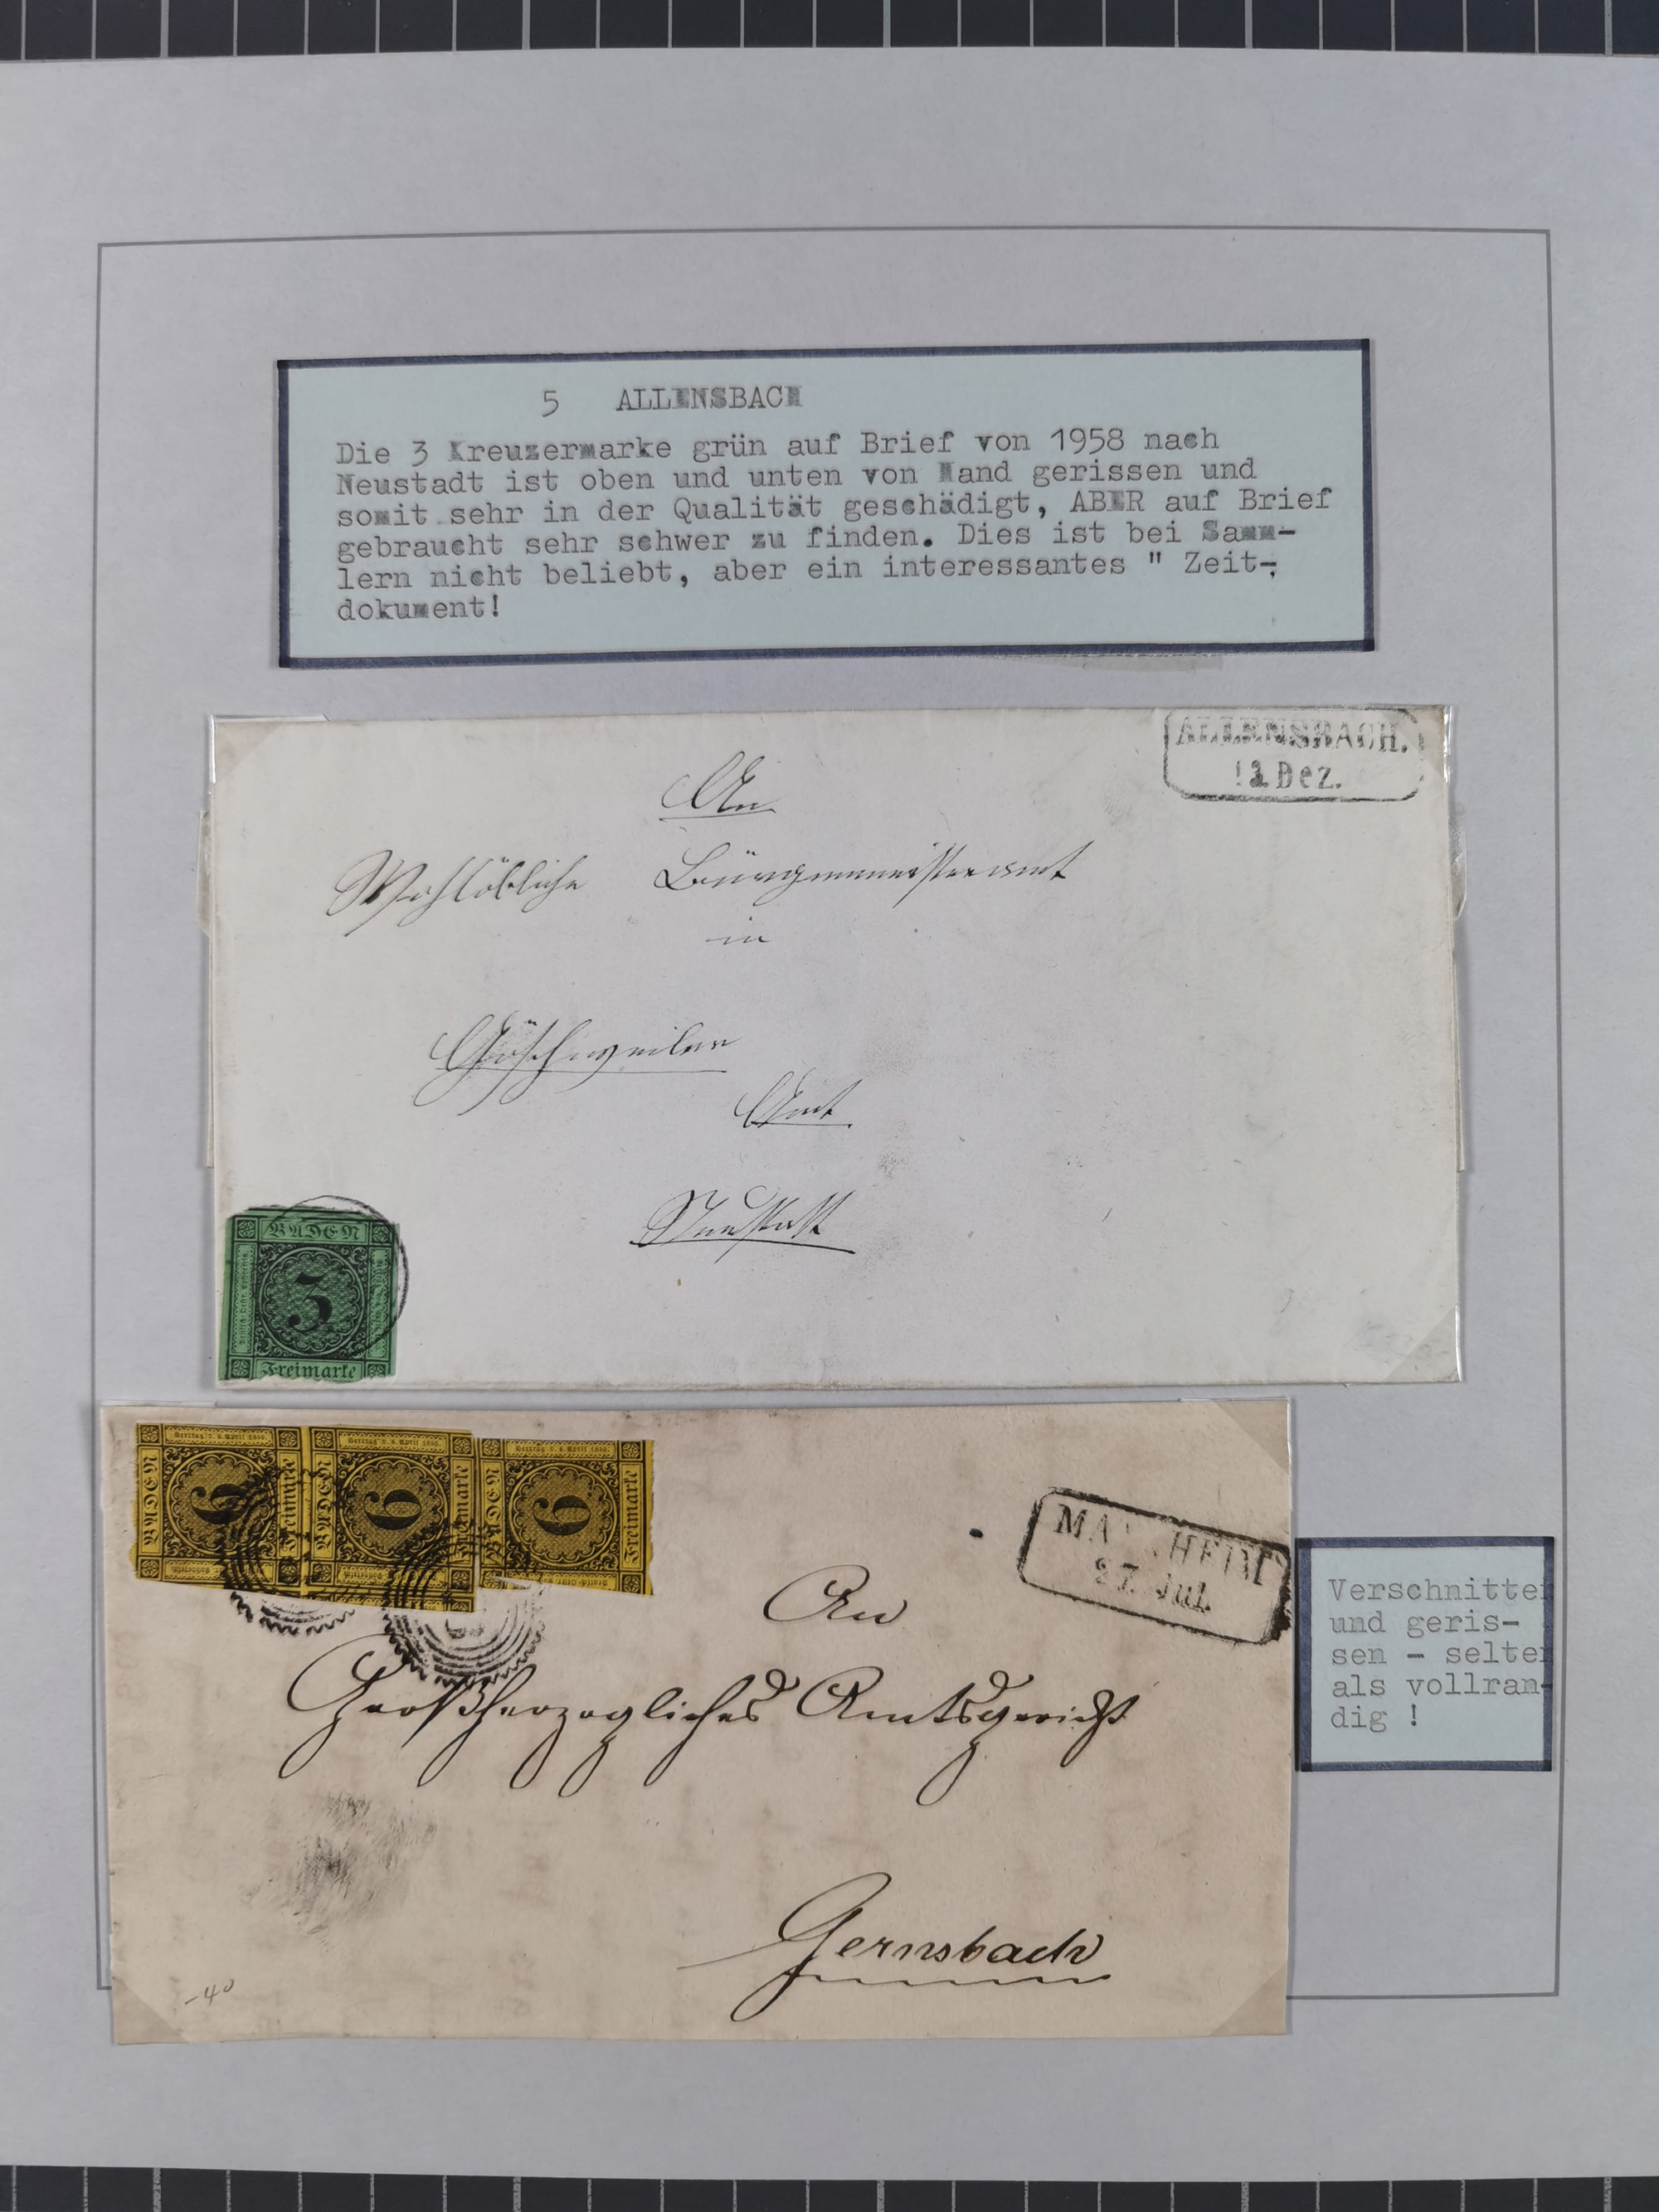 5 ALLENSBACH
Die 3 Kreuzermarke grün auf Brief von 1958 nach
Neustadt ist oben und unten von Hand gerissen und
somit sehr in der Qualität geschädigt, ABER auf Brief
gebraucht sehr schwer zu finden. Dies ist bei Samm-
lern nicht beliebt, aber ein interessantes " Zeit-
dokument!
ALLENSBACH.
Dez.
An
Wohllöbliche Bürgermeisteramt
in
Göschweiler
Amt
Neustadt
BADEN
3
Freimarke
BADEN
6
Freimarke
BADEN
6
Freimarke
BADEN
6
Freimarke
27. Jul.
An
Großherzogliches Amtsgericht
Gernsbach
-40
Verschnitten
und geris-
sen - selten
als vollran-
dig !